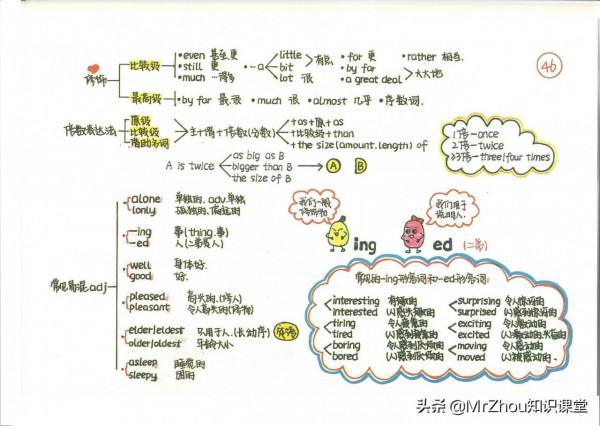 46
修饰
比较级
•even 甚至更
•still 更
•much …得多
•a
little
bit
lot 很
有点
•far 更
•by far
•a great deal
大大地
•rather 相当
最高级
•by far 最…很 •much 很 •almost 几乎 •序数词.
倍数表达法
原级
比较级
借助名词
主+谓+倍数(分数)
+as+原+as
+比较级+than
+the size(amount.length) of
1倍-once
2倍-twice
≥3倍-three|four times
A is twice
as big as B
bigger than B
the size of B
A B
常见易混adj
alone 单独的. adv.单独
lonely 孤独的.偏远的
-ing 事(thing.事)
-ed 人(二弟贵人)
well 身体好.
good 好.
pleased 高兴的.(修人)
pleasant 令人高兴的(修物)
elder|eldest 只用于人.(长幼序)
older|oldest 年龄大小
asleep 睡觉的
sleepy 困的
我们一般修饰物
ing
我们用于说明人.
ed (二弟)
常见的-ing形容词和-ed形容词:
interesting 有趣的
interested (人)感兴趣的
tiring 令人疲惫的
tired (人)感到疲惫的
boring 令人感到厌烦的
bored (人)感到厌烦的
surprising 令人惊讶的
surprised (人)感到惊讶的
exciting 令人激动的
excited (人)激动的.兴奋的
moving 令人感动的
moved (人)被感动的.
头条 @MrZhou知识课堂